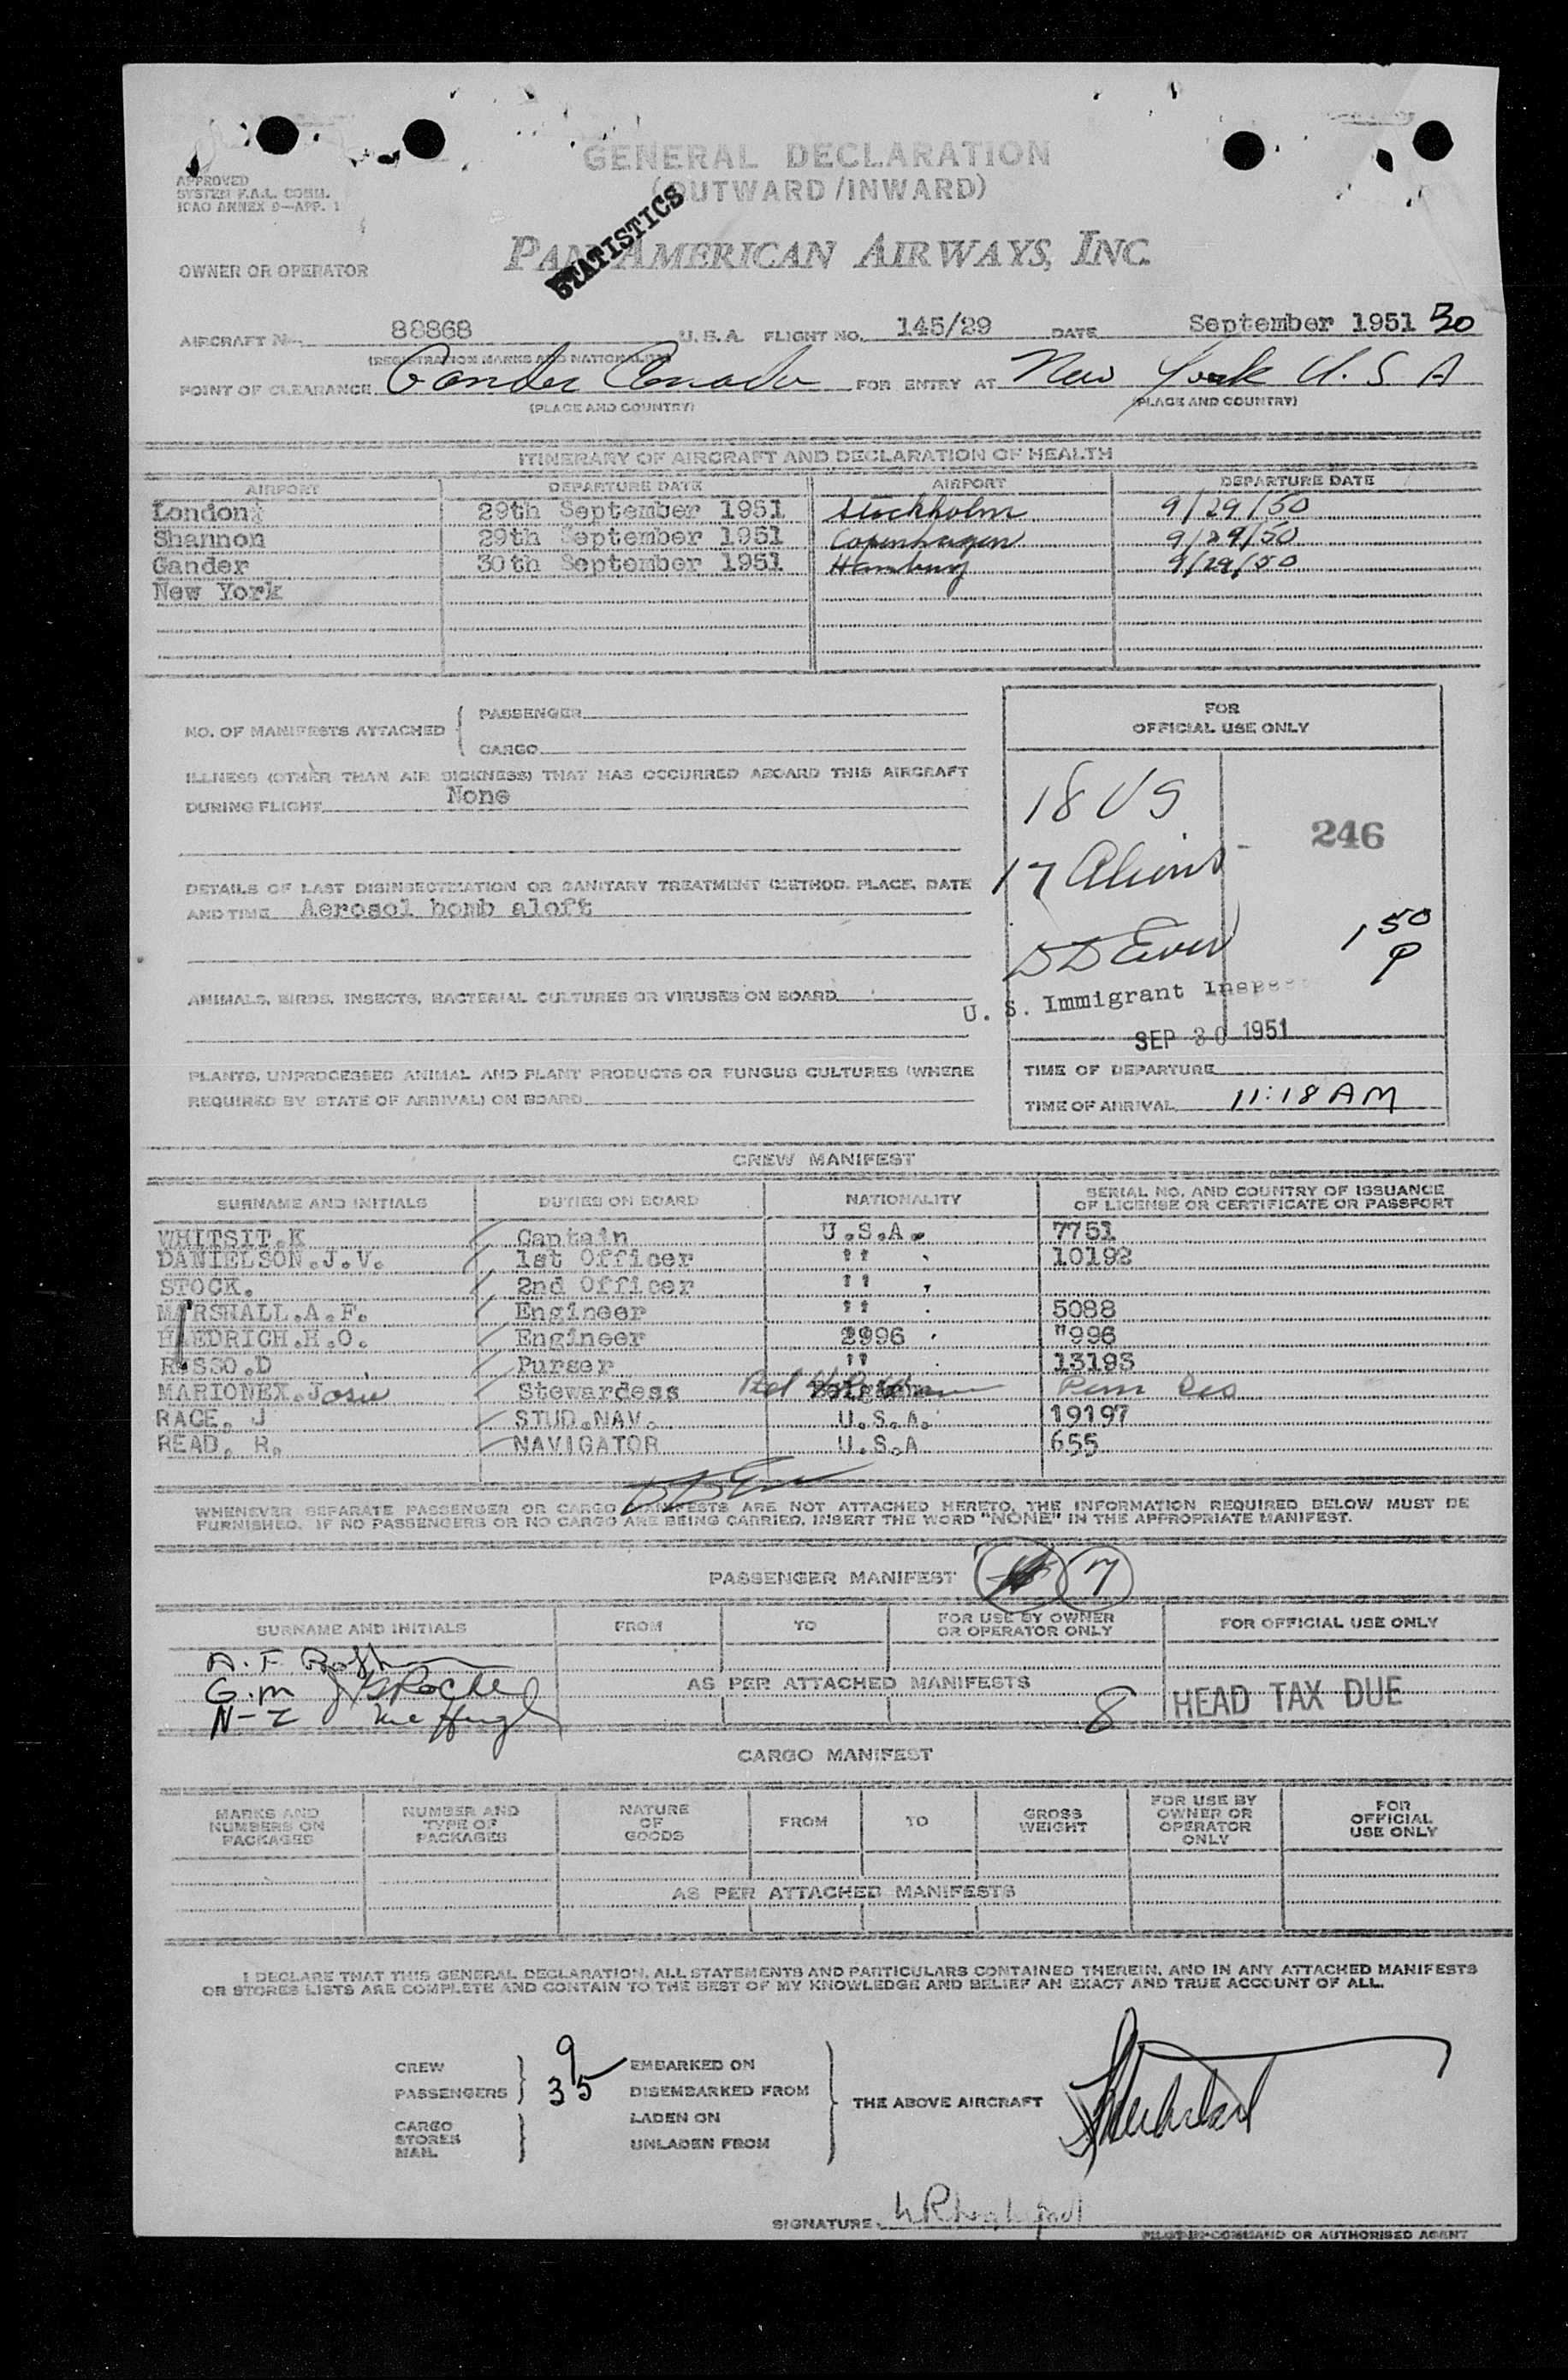 GENERAL DECLARATION
(OUTWARD/INWARD)
APPROVED
SYSTEM F.A.L. COMM.
ICAO ANNEX 9—APP. 1
STATISTICS
PAN AMERICAN AIRWAYS, INC.
OWNER OR OPERATOR
AIRCRAFT No. 88868 U.S.A. FLIGHT NO. 145/29 DATE September 1951 30
(REGISTRATION MARKS AND NATIONALITY)
POINT OF CLEARANCE Gander Canada FOR ENTRY AT New York U.S A
(PLACE AND COUNTRY) (PLACE AND COUNTRY)
ITINERARY OF AIRCRAFT AND DECLARATION OF HEALTH
AIRPORT DEPARTURE DATE AIRPORT DEPARTURE DATE
London 29th September 1951 Stockholm 9/29/50
Shannon 29th September 1951 Copenhagen 9/29/50
Gander 30th September 1951 Hamburg 9/29/50
New York
NO. OF MANIFESTS ATTACHED { PASSENGER
CARGO
FOR
OFFICIAL USE ONLY
ILLNESS (OTHER THAN AIR SICKNESS) THAT HAS OCCURRED ABOARD THIS AIRCRAFT
DURING FLIGHT None
18 US
246
17 Aliens
DETAILS OF LAST DISINSECTIZATION OR SANITARY TREATMENT (METHOD, PLACE, DATE
AND TIME Aerosol bomb aloft
1 50
P
ANIMALS, BIRDS, INSECTS, BACTERIAL CULTURES OR VIRUSES ON BOARD
U. S. Immigrant Inspec
SEP 30 1951
PLANTS, UNPROCESSED ANIMAL AND PLANT PRODUCTS OR FUNGUS CULTURES (WHERE
REQUIRED BY STATE OF ARRIVAL) ON BOARD
TIME OF DEPARTURE
TIME OF ARRIVAL 11:18 AM
CREW MANIFEST
SURNAME AND INITIALS DUTIES ON BOARD NATIONALITY SERIAL NO. AND COUNTRY OF ISSUANCE
OF LICENSE OR CERTIFICATE OR PASSPORT
WHITSIT.K Captain U.S.A. 7751
DANIELSON.J.V. 1st Officer " 10192
STOCK. 2nd Officer "
MARSHALL.A.F. Engineer " 5088
HAEDRICH.H.O. Engineer 2996 "996
RUSSO.D Purser " 13193
MARIONEX.Josie Stewardess Belgium Perm Res
RACE. J STUD.NAV. U.S.A. 19197
READ. R. NAVIGATOR U.S.A 655
WHENEVER SEPARATE PASSENGER OR CARGO MANIFESTS ARE NOT ATTACHED HERETO, THE INFORMATION REQUIRED BELOW MUST BE
FURNISHED. IF NO PASSENGERS OR NO CARGO ARE BEING CARRIED, INSERT THE WORD "NONE" IN THE APPROPRIATE MANIFEST.
PASSENGER MANIFEST 7
SURNAME AND INITIALS FROM TO FOR USE BY OWNER
OR OPERATOR ONLY FOR OFFICIAL USE ONLY
A. F.
G. M
AS PER ATTACHED MANIFESTS
8 HEAD TAX DUE
CARGO MANIFEST
MARKS AND
NUMBERS ON
PACKAGES
NUMBER AND
TYPE OF
PACKAGES
NATURE
OF
GOODS
FROM
TO
GROSS
WEIGHT
FOR USE BY
OWNER OR
OPERATOR
ONLY
FOR
OFFICIAL
USE ONLY
AS PER ATTACHED MANIFESTS
I DECLARE THAT THIS GENERAL DECLARATION, ALL STATEMENTS AND PARTICULARS CONTAINED THEREIN, AND IN ANY ATTACHED MANIFESTS
OR STORES LISTS ARE COMPLETE AND CONTAIN TO THE BEST OF MY KNOWLEDGE AND BELIEF AN EXACT AND TRUE ACCOUNT OF ALL.
CREW 9 EMBARKED ON
PASSENGERS 35 DISEMBARKED FROM
THE ABOVE AIRCRAFT
CARGO LADEN ON
STORES
MAIL UNLADEN FROM
SIGNATURE
PILOT-IN-COMMAND OR AUTHORISED AGENT